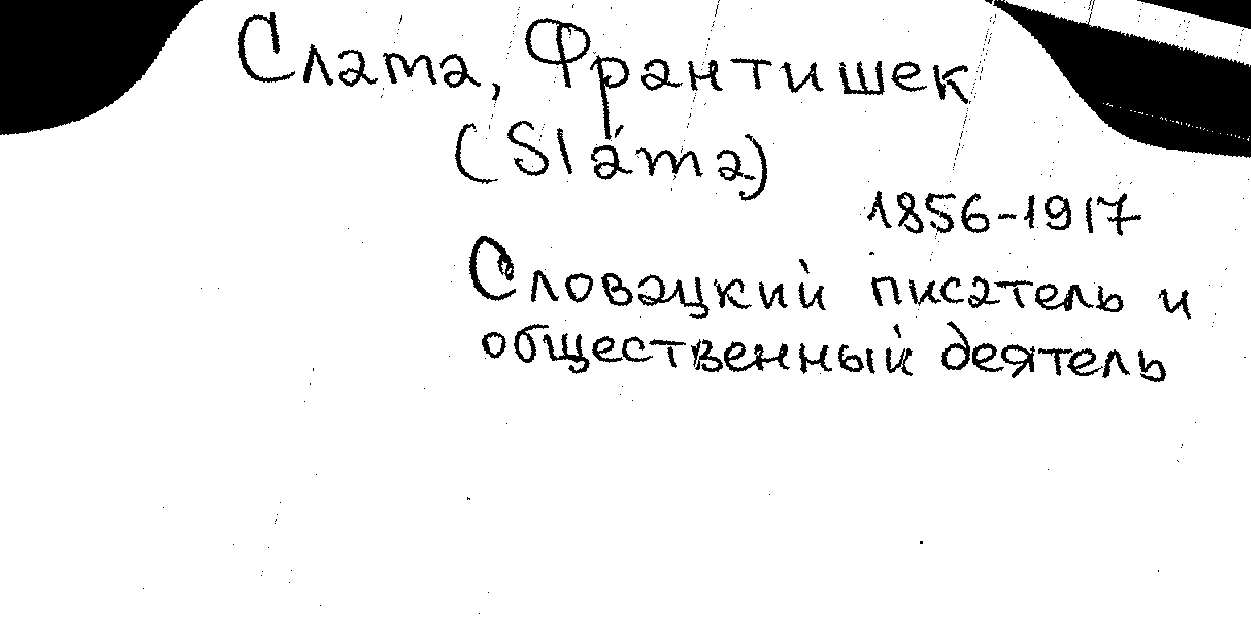 Слата, Франтишек
(Sláma)
1856-1917
Словацкий писатель и
общественный деятель